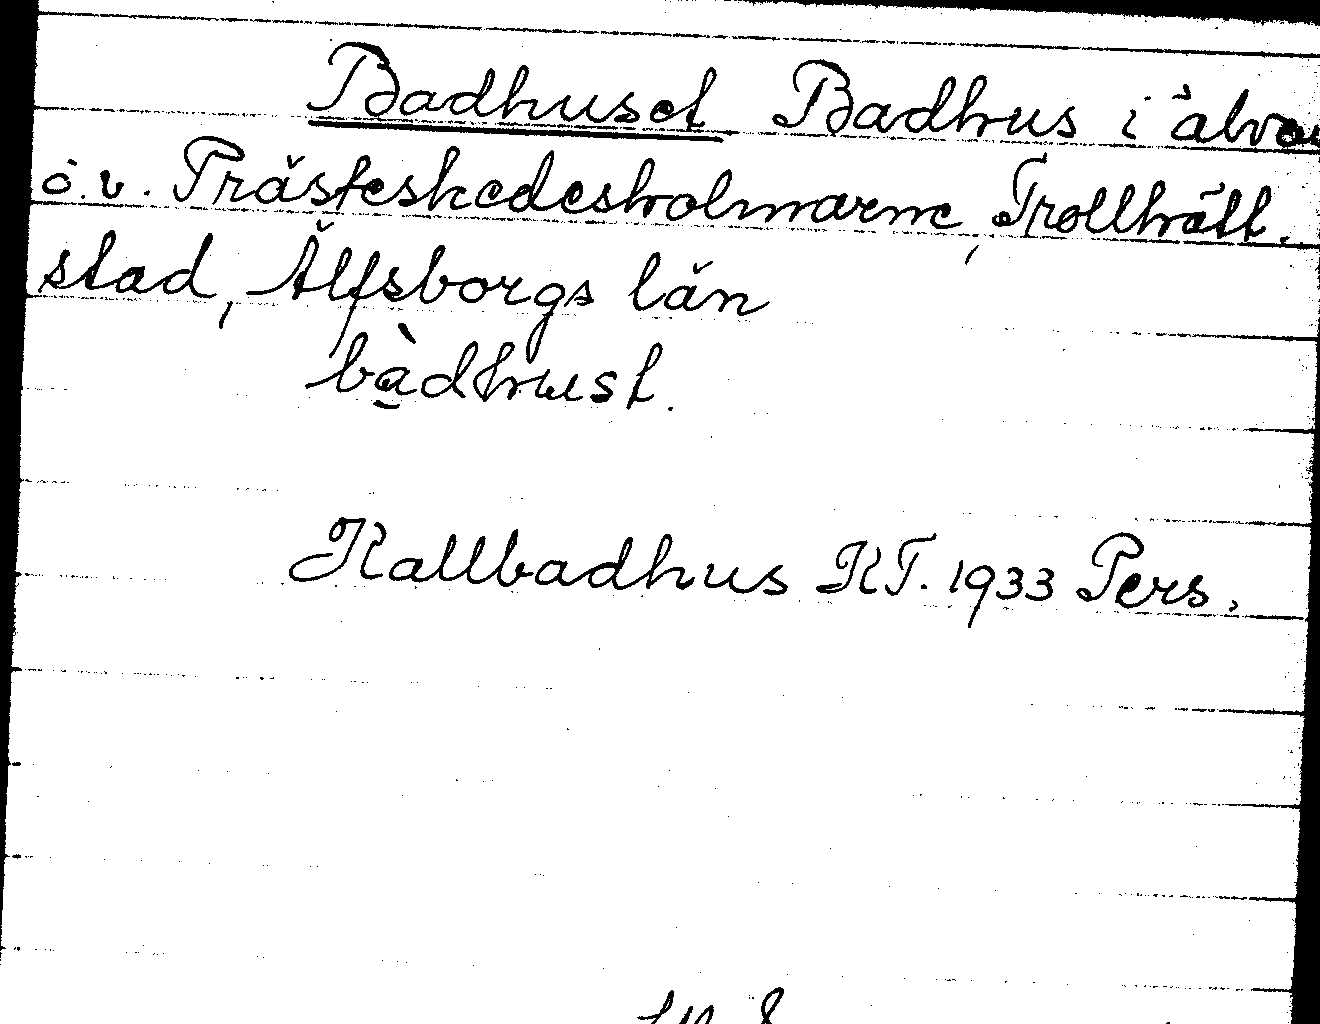 Badhuset Badhus i älven
ö. v. Prästeskedesholmarne, Trollhätt.
stad, Älfsborgs län
bàdhust.
Kallbadhus KT. 1933 Pers.